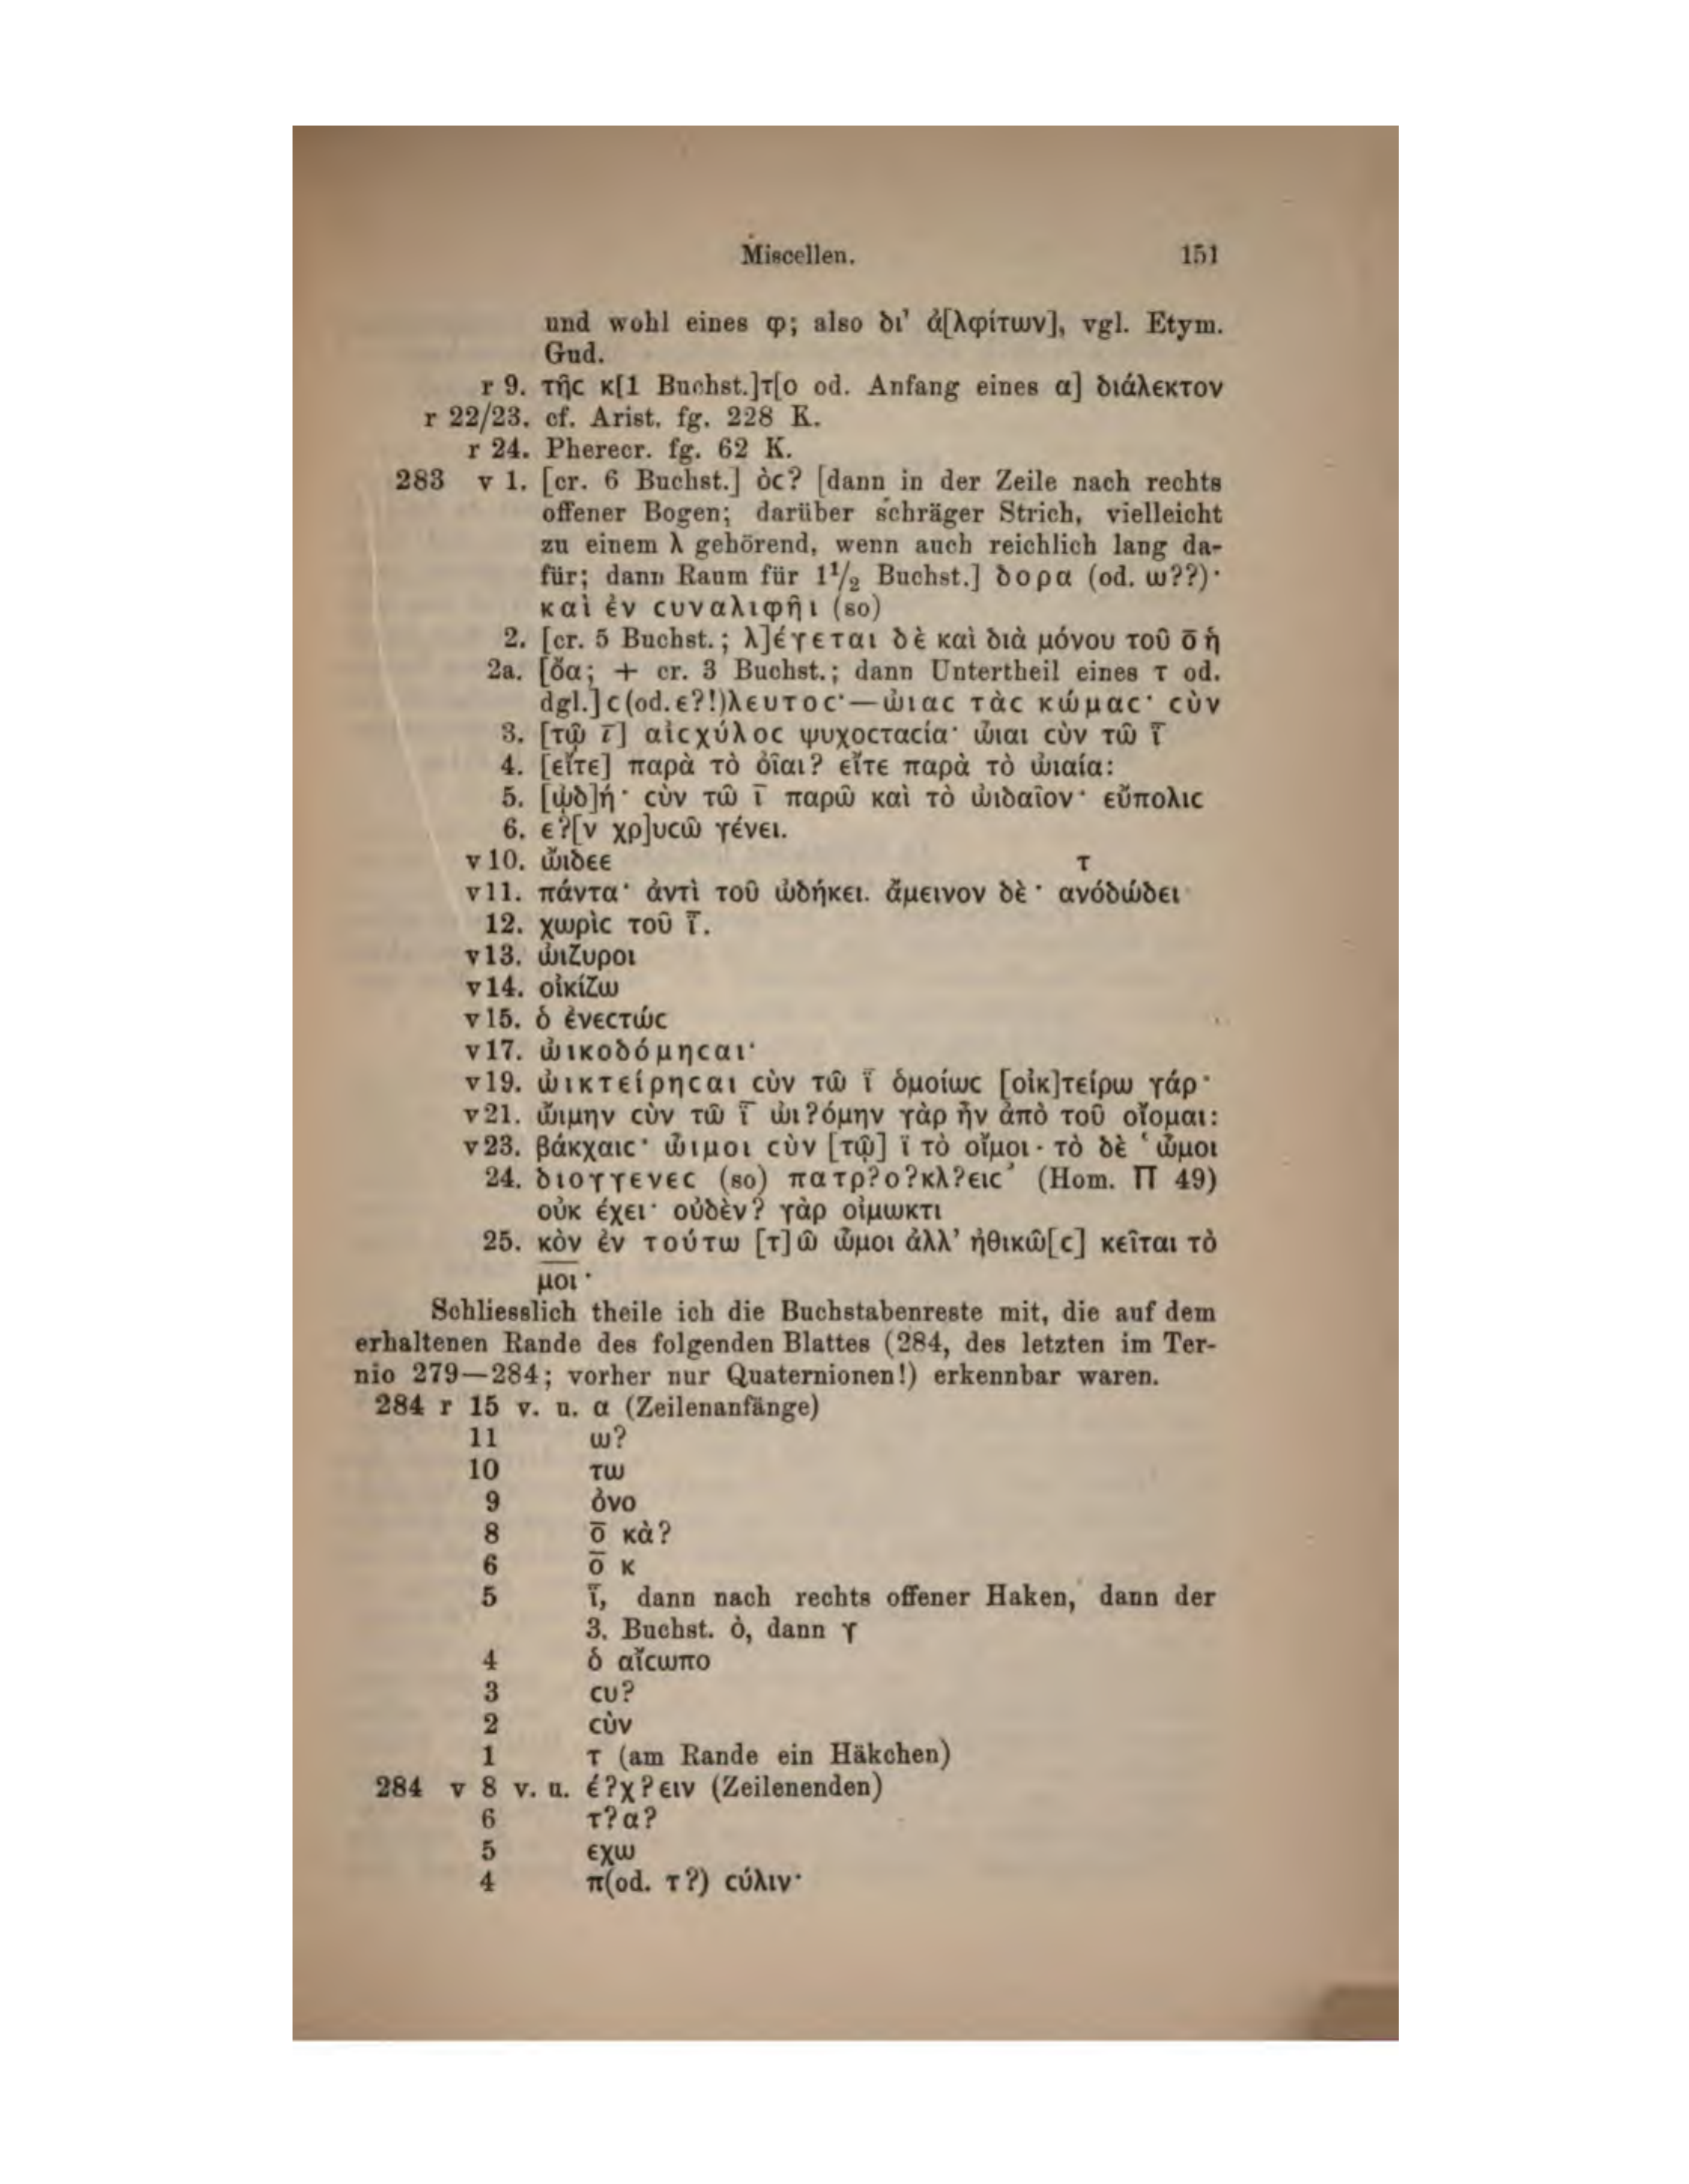 Miscellen. 151
und wohl eines φ; also δι' ἀ[λφίτων], vgl. Etym.
Gud.
r 9. τῆϲ κ[1 Buchst.]τ[ο od. Anfang eines α] διάλεκτον
r 22/23. cf. Arist. fg. 228 K.
r 24. Pherecr. fg. 62 K.
283 v 1. [cr. 6 Buchst.] ὸϲ? [dann in der Zeile nach rechts
offener Bogen; darüber schräger Strich, vielleicht
zu einem λ gehörend, wenn auch reichlich lang da-
für; dann Raum für 1½ Buchst.] δορα (od. ω??)·
καὶ ἐν ϲυναλιφῆι (so)
2. [cr. 5 Buchst.; λ]έγεται δὲ καὶ διὰ μόνου τοῦ ο̄ ἡ
2a. [ὄα; + cr. 3 Buchst.; dann Untertheil eines τ od.
dgl.] ϲ(od. ε?!)λευτοϲ·—ὠιαϲ τὰϲ κώμαϲ· ϲὺν
3. [τῷ ῑ] αἰϲχύλοϲ ψυχοϲταϲία· ὦιαι ϲὺν τῶ ϊ̄
4. [εἴτε] παρὰ τὸ ὀῖαι? εἴτε παρὰ τὸ ὠιαία:
5. [ᾠδ]ή· ϲὺν τῶ ῑ παρῶ καὶ τὸ ὠιδαῖον· εὔπολιϲ
6. ε?[ν χρ]υϲῶ γένει.
v 10. ὤιδεε τ
v 11. πάντα· ἀντὶ τοῦ ὠδήκει. ἄμεινον δὲ· ανόδώδει
12. χωρὶϲ τοῦ ϊ̄.
v 13. ὠιζυροι
v 14. οἰκίζω
v 15. ὁ ἐνεϲτώϲ
v 17. ὠικοδόμηϲαι·
v 19. ὠικτείρηϲαι ϲὺν τῶ ϊ̄ ὁμοίωϲ [οἰκ]τείρω γάρ·
v 21. ὤιμην ϲὺν τῶ ϊ̄ ὠι?όμην γὰρ ἦν ἀπὸ τοῦ οἴομαι:
v 23. βάκχαιϲ· ὦιμοι ϲὺν [τῷ] ϊ τὸ οἴμοι · τὸ δὲ ‘ὦμοι
24. διογγενεϲ (so) πατρ?ο?κλ?ειϲ’ (Hom. Π 49)
οὐκ έχει· οὐδὲν? γὰρ οἰμωκτι
25. κὸν ἐν τούτω [τ]ῶ ὦμοι ἀλλ' ἠθικῶ[ϲ] κεῖται τὸ
μοι·
Schliesslich theile ich die Buchstabenreste mit, die auf dem
erhaltenen Rande des folgenden Blattes (284, des letzten im Ter-
nio 279—284; vorher nur Quaternionen!) erkennbar waren.
284 r 15 v. u. α (Zeilenanfänge)
11 ω?
10 τω
9 ὀνο
8 ο̄ κὰ?
6 ο̄ κ
5 ϊ̄, dann nach rechts offener Haken, dann der
3. Buchst. ὸ, dann γ
4 ὁ αἴϲωπο
3 ϲυ?
2 ϲὺν
1 τ (am Rande ein Häkchen)
284 v 8 v. u. έ?χ?ειν (Zeilenenden)
6 τ?α?
5 εχω
4 π(od. τ?) ϲύλιν·